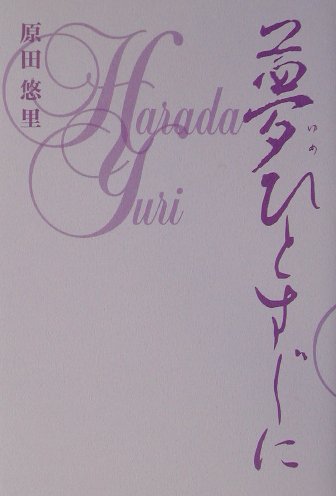 夢ひとすじに
いめ
原田悠里
Harada
Yuri